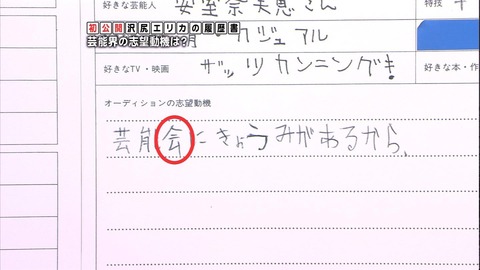 初公開 沢尻エリカの履歴書
芸能界の志望動機は?
好きな芸能人 安室奈美恵さん 特技
カジュアル
好きなTV・映画 ザッツカンニングetc 好きな本・作
オーディションの志望動機
芸能会にきょうみがあるから、